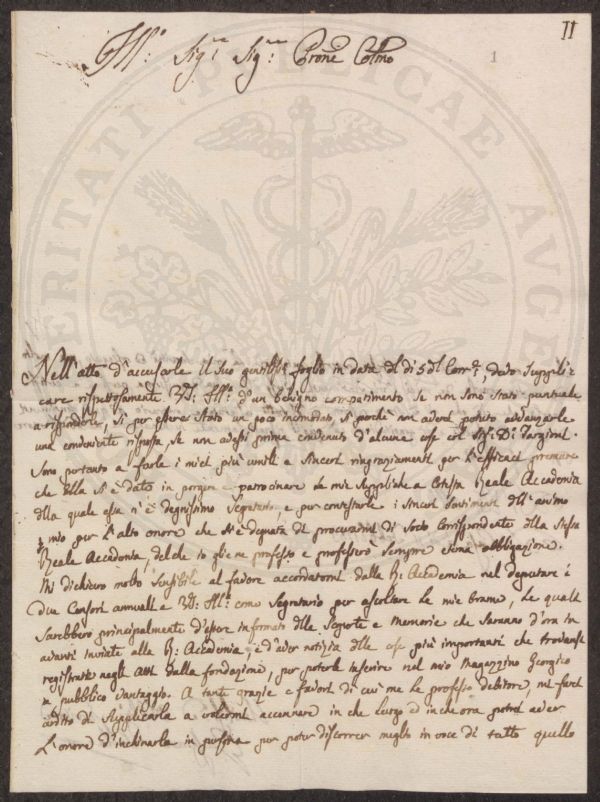 II
1
Ill.º Sig.re Sig.re Prone Colmo
PROSPERITATI PUBLICAE AUGENDAE
Nell'atto d'accusarle il suo gentiliss.º foglio in data del di 5 del Corr.e, devo suppli=
care rispettosamente VS: Ill.ª d'un benigno compatimento se non sono stato puntuale
a risponderle, si per essere stato un poco incomodato si perche non averei potuto avvanzarle
una conveniente risposta se non avessi prima conferito d'alcune cose col Sig.r D.r Targioni.
Sono pertanto a farle i miei più umili e sinceri ringraziamenti per l'efficaci premure
che Ella si è data in porgere e patrocinare le mie suppliche a cotesta Reale Accademia
della quale essa n'è degnissimo Segretario, e per contestarle i sinceri sentimenti dell'animo
mio per l'alto onore che s'è degnata di procurarmi di Socio Corrispondente della stessa
Reale Accademia, del che io gliene professo e professerò sempre eterna obbligazione.
Mi dichiaro molto sensibile al favore accordatomi dalla R: Accademia nel deputare i
due Consori annuali e VS: Ill.ª come Segretario per ascoltare le mie brame, le quali
sarebbero principalmente d'essere informato delle scoperte e memorie che saranno d'ora in
avanti inviate alla R: Accademia, e d'aver notizia delle cose più importanti che trovansi
registrate negli Atti dalla fondazione, per poterle inserire nel mio Magazzino Georgico
a pubblico vantaggio. A tante grazie e favori di cui me le professo debitore, mi farei
ardito di supplicarla a volermi accennare in che luogo ed in che ora potrei aver
l'onore d'inchinarla in persona per poter discorrer meglio in voce di tutto quello